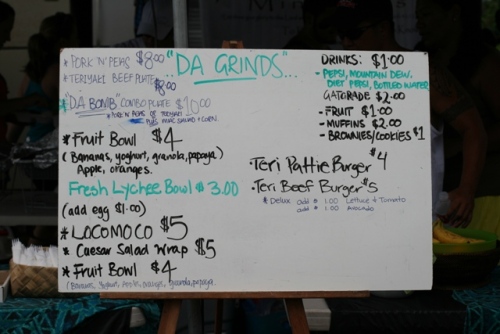 "DA GRINDS"...
* PORK N' PEAS $8.00
* TERIYAKI BEEF PLATE $8.00
* "DA BOMB" COMBO PLATE $10.00
* PORK N' PEAS OR TERIYAKI
PLUS MAC SALAD & CORN
* Fruit Bowl $4
(Bananas, yoghurt, granola, papaya)
Apple, oranges.
Fresh Lychee Bowl $3.00
(add egg $1.00)
* LOCOMOCO $5
* Caesar Salad Wrap $5
* Fruit Bowl $4
(Bananas, Yoghurt, Apple, oranges, granola, papaya.
DRINKS: $1.00
- PEPSI, MOUNTAIN DEW,
DIET PEPSI, BOTTLED WATER
GATORADE $2.00
- FRUIT $1.00
- MUFFINS $2.00
- BROWNIES/COOKIES $1
• Teri Pattie Burger $4
• Teri Beef Burger $5
* Delux add $1.00 Lettuce & Tomato
add $1.00 Avocado